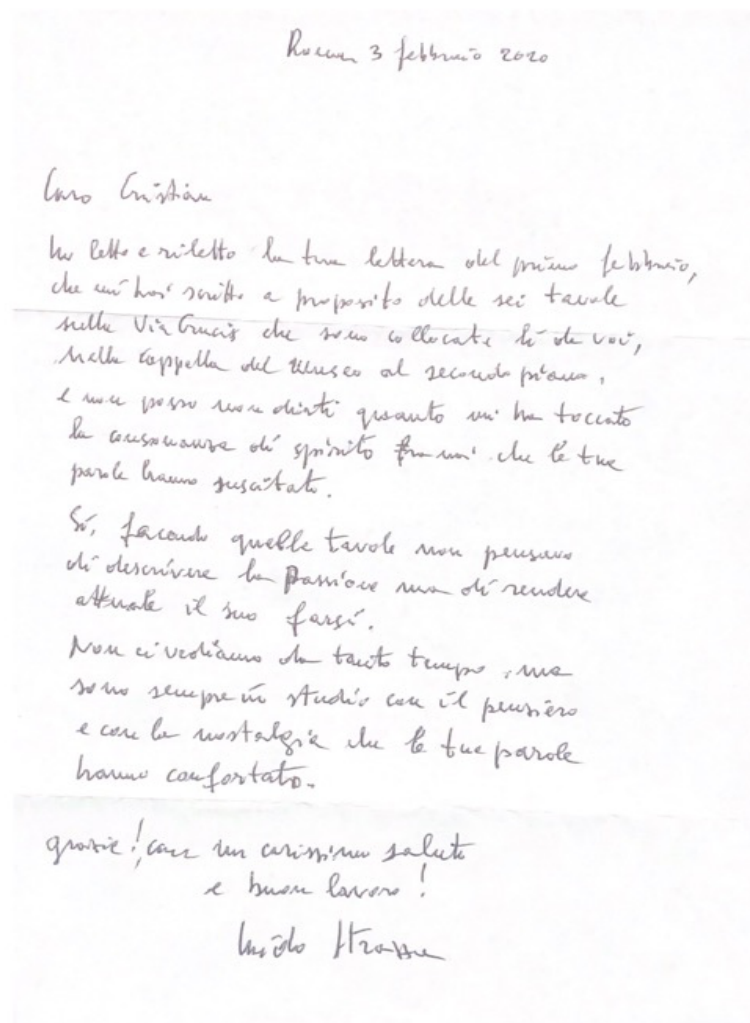 Roma 3 febbraio 2020
Caro Cristian
ho letto e riletto la tua lettera del primo febbraio,
che mi hai scritto a proposito delle sei tavole
sulla Via Crucis che sono collocate lì da voi,
nella cappella del Museo al secondo piano,
e non posso non dirti quanto mi ha toccato
la consonanza di spirito fra noi che le tue
parole hanno suscitato.
Sì, facendo quelle tavole non pensavo
di descrivere la Passione ma di rendere
attuale il suo farsi.
Non ci vediamo da tanto tempo, ma
sono sempre in studio con il pensiero
e con la nostalgia che le tue parole
hanno confortato.
grazie! con un carissimo saluto
e buon lavoro!
Guido Strazza